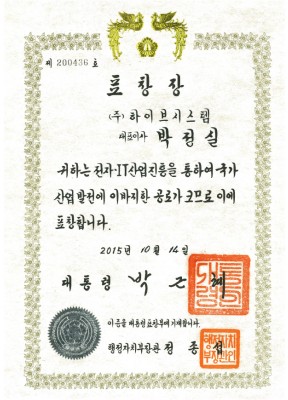 제 200436 호
표창장
(주)하이브시스템
대표이사 박정실
귀하는 전자·IT산업진흥을 통하여 국가
산업발전에 이바지한 공로가 크므로 이에
표창합니다.
2015년 10월 14일
대통령 박근혜
이 증을 대통령표창부에 기재합니다.
행정자치부장관 정종섭